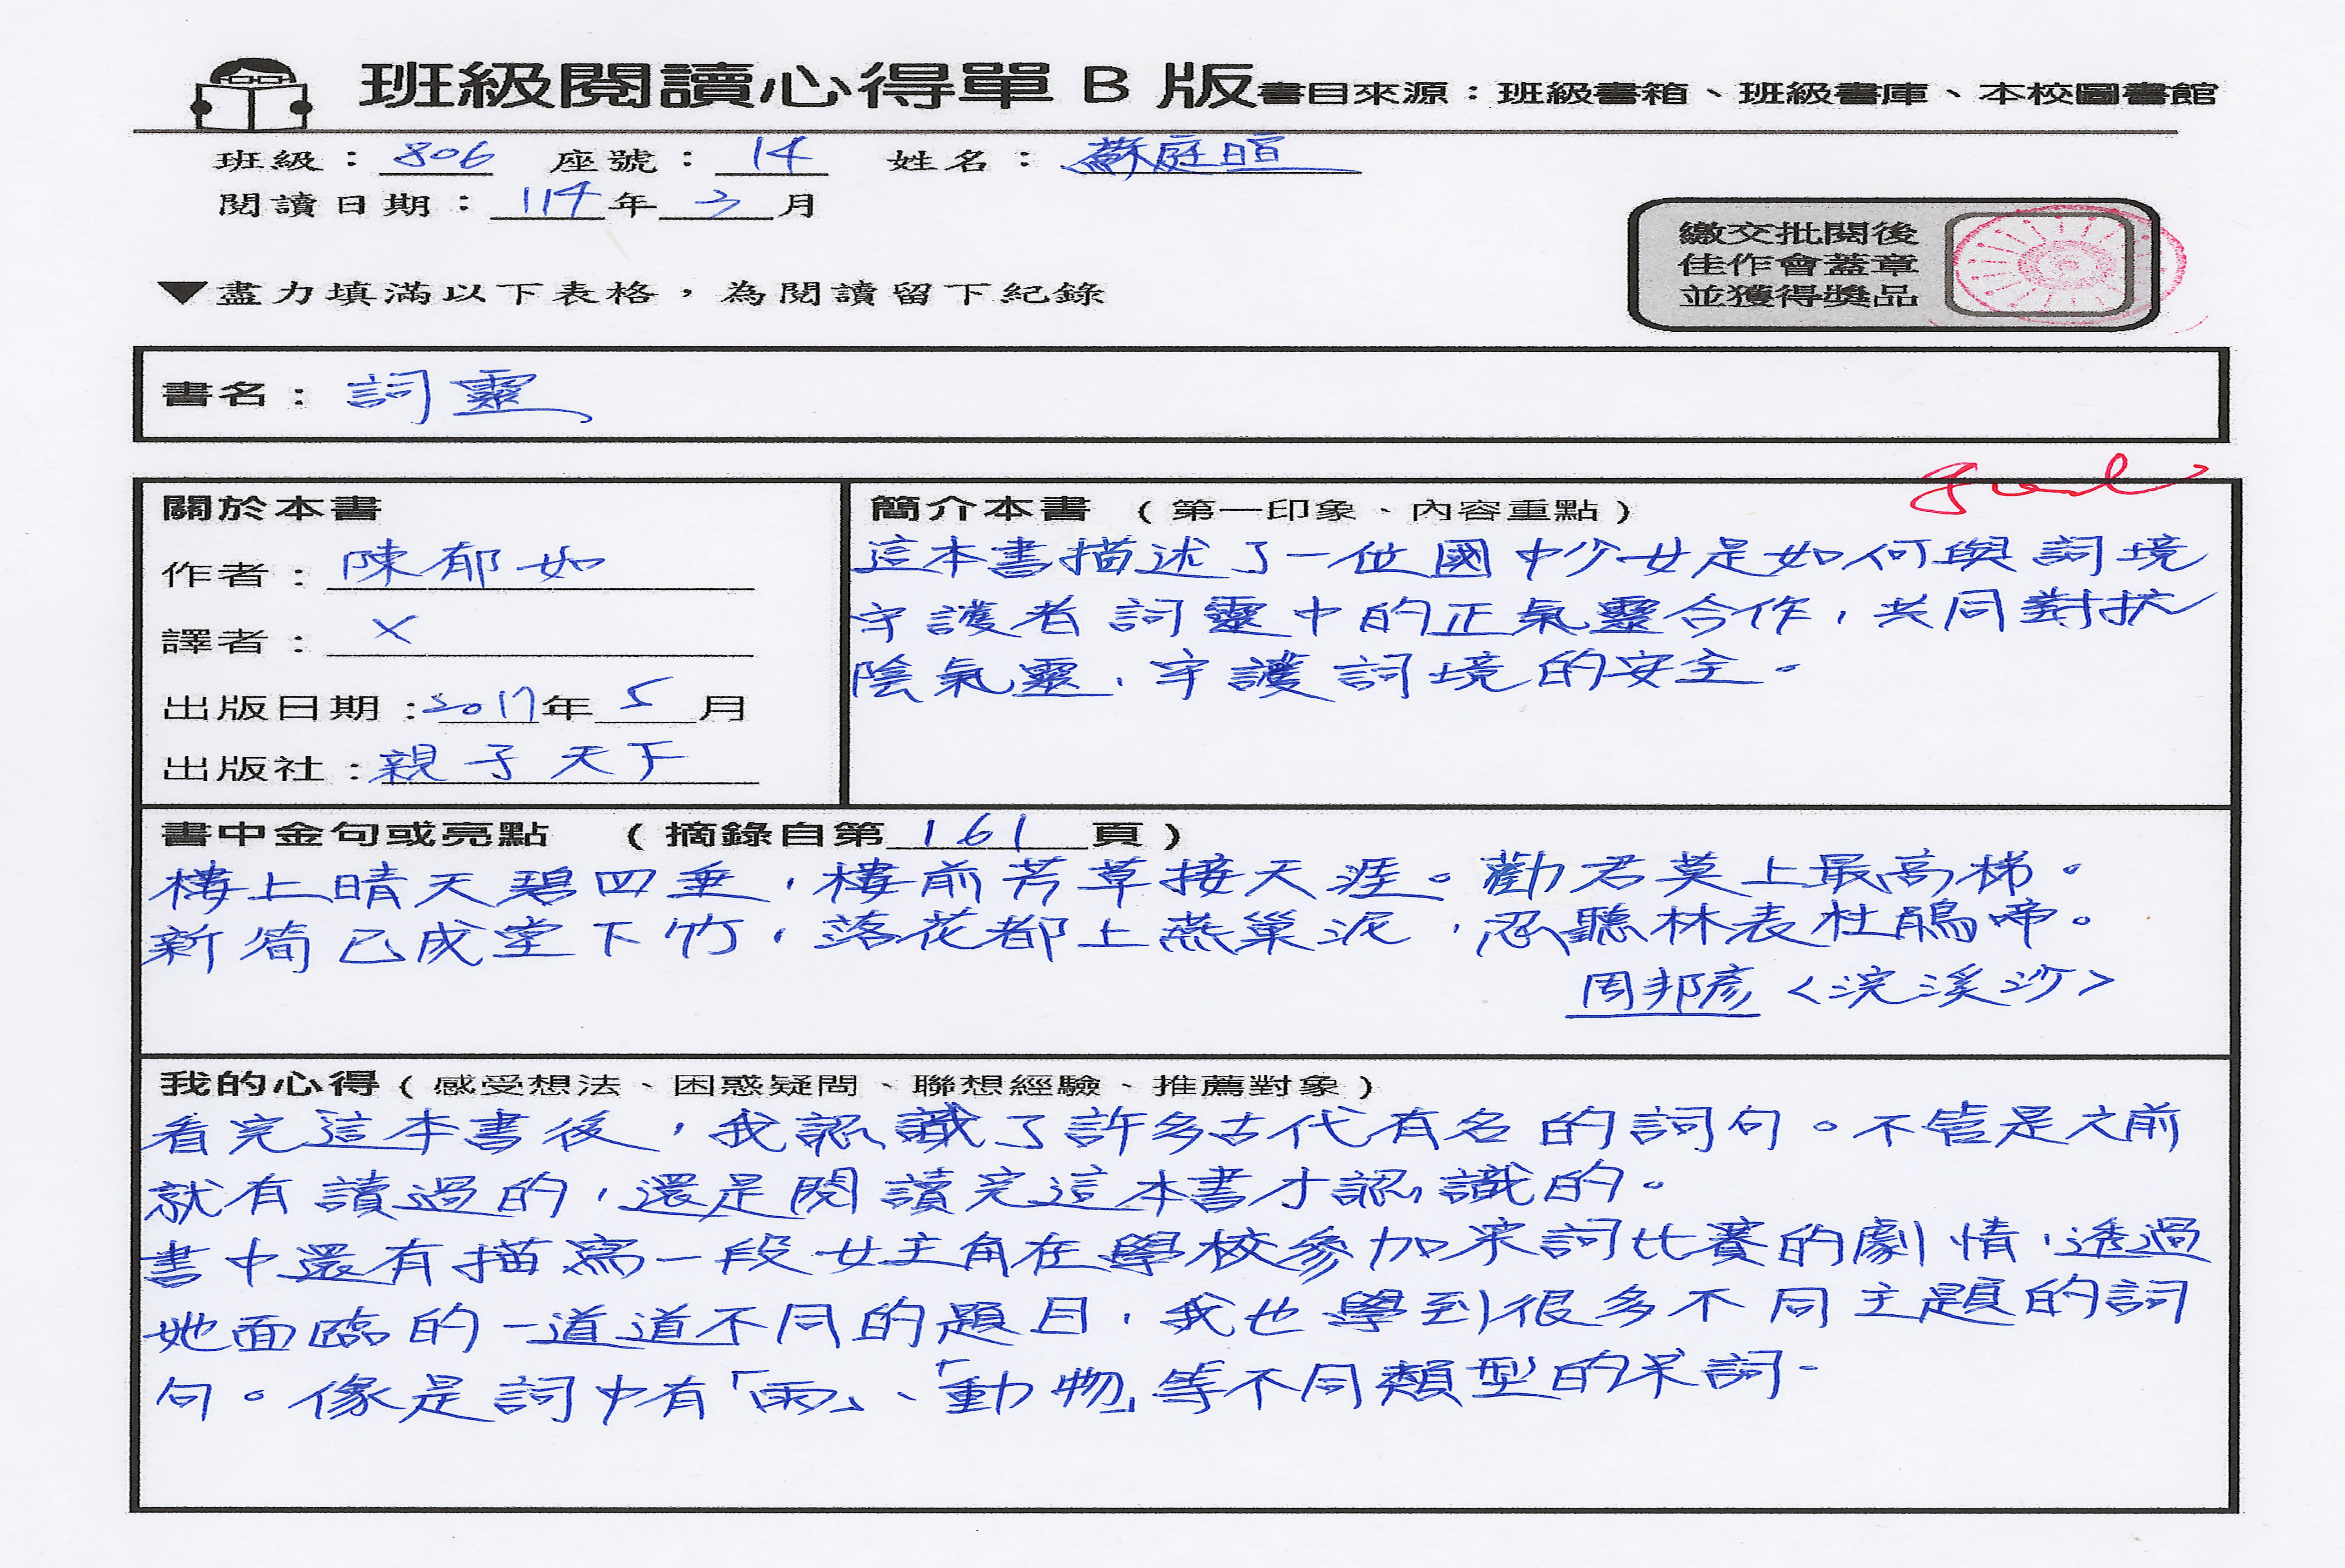 班級閱讀心得單 B 版 書目來源：班級書箱、班級書庫、本校圖書館
班級：806 座號：14 姓名：蘇庭暄
閱讀日期：114年3月
繳交批閱後
佳作會蓋章
並獲得獎品
▼盡力填滿以下表格，為閱讀留下紀錄
書名：詞靈
Good
關於本書
作者：陳郁如
譯者：X
出版日期：2017年5月
出版社：親子天下
簡介本書（第一印象、內容重點）
這本書描述了一位國中少女是如何與詞境
守護者詞靈中的正氣靈合作，共同對抗
陰氣靈，守護詞境的安全。
書中金句或亮點（摘錄自第161頁）
樓上晴天碧四垂，樓前芳草接天涯。勸君莫上最高梯。
新筍已成堂下竹，落花都上燕巢泥，忍聽林表杜鵑啼。
周邦彥＜浣溪沙＞
我的心得（感受想法、困惑疑問、聯想經驗、推薦對象）
看完這本書後，我認識了許多古代有名的詞句。不管是之前
就有讀過的，還是閱讀完這本書才認識的。
書中還有描寫一段女主角在學校參加宋詞比賽的劇情，透過
她面臨的一道道不同的題目，我也學到很多不同主題的詞
句。像是詞中有「雨」、「動物」等不同類型的宋詞。